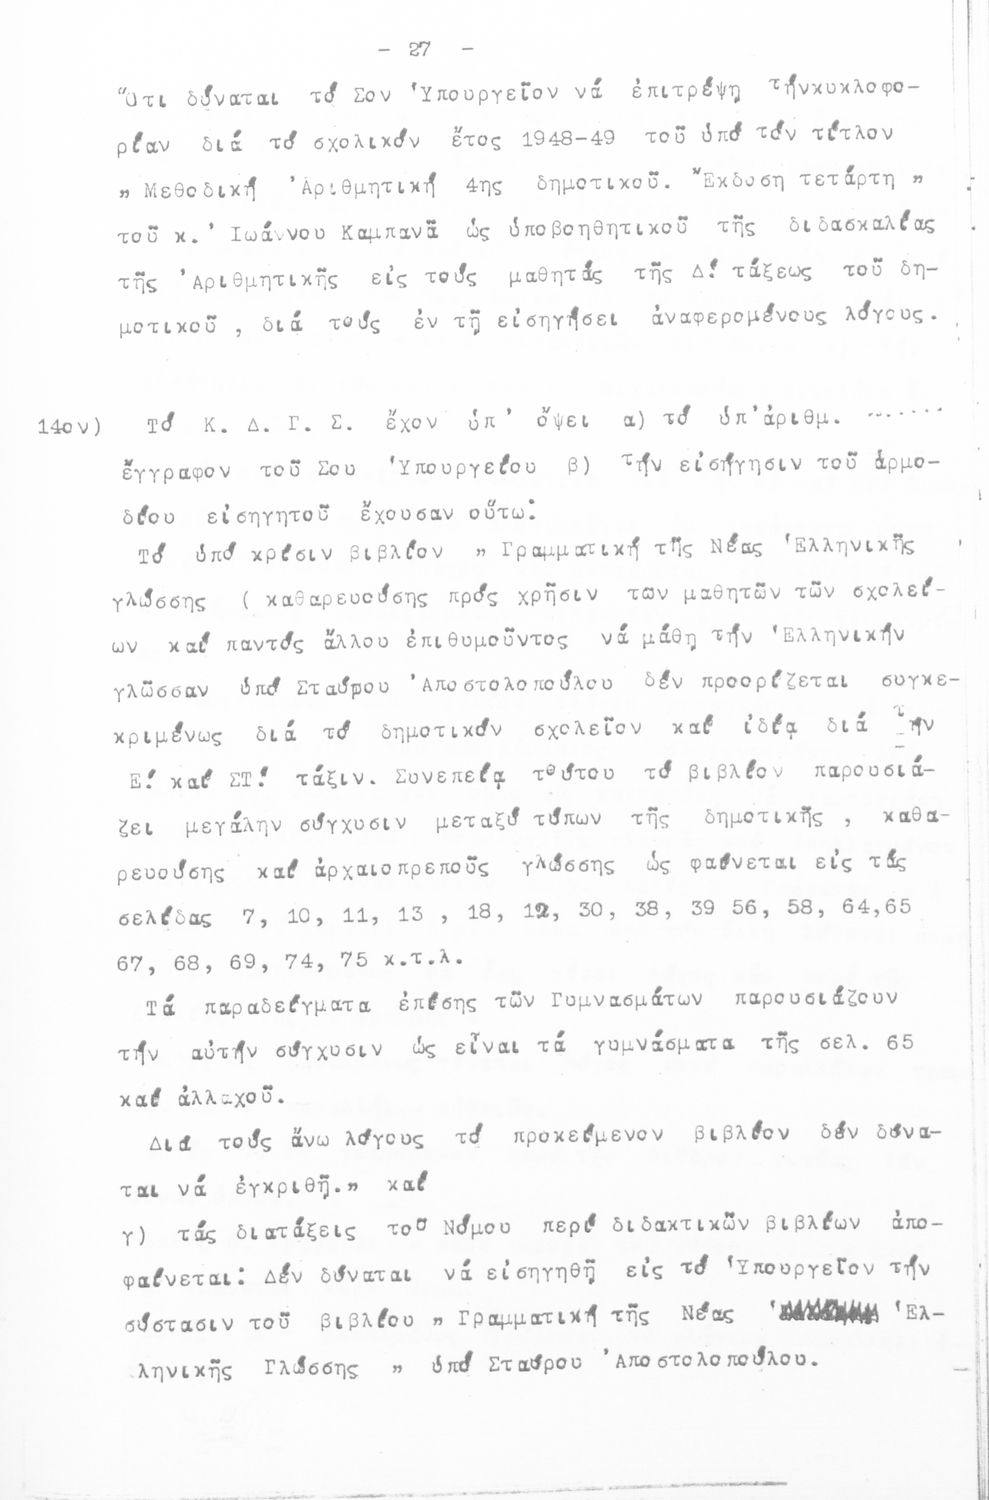 - 27 -
Ὅτι δύναται τό Σον Ὑπουργεῖον νά ἐπιτρέψῃ τήνκυκλοφο-
ρίαν διά τό σχολικόν ἔτος 1948-49 τοῦ ὑπό τόν τίτλον
" Μεθοδική Ἀριθμητική 4ης δημοτικοῦ. Ἔκδοση τετάρτη "
τοῦ κ.' Ἰωάννου Καμπανᾶ ὡς ὑποβοηθητικοῦ τῆς διδασκαλίας
τῆς Ἀριθμητικῆς εἰς τούς μαθητάς τῆς Δ! τάξεως τοῦ δη-
μοτικοῦ , διά τούς ἐν τῇ εἰσηγήσει ἀναφερομένους λόγους.
14ον) Τό Κ. Δ. Γ. Σ. ἔχον ὑπ' ὄψει α) τό ὑπ'ἀριθμ. .......
ἔγγραφον τοῦ Σου Ὑπουργείου β) τήν εἰσήγησιν τοῦ ἁρμο-
δίου εἰσηγητοῦ ἔχουσαν οὕτω:
Τό ὑπό κρίσιν βιβλίον " Γραμματική τῆς Νέας Ἑλληνικῆς
γλώσσης ( καθαρευούσης πρός χρῆσιν των μαθητῶν τῶν σχολεί-
ων καί παντός ἄλλου ἐπιθυμοῦντος νά μάθῃ τήν Ἑλληνικήν
γλῶσσαν ὑπό Σταύρου Ἀποστολοπούλου δέν προορίζεται συγκε-
κριμένως διά τό δημοτικόν σχολεῖον καί ἰδίᾳ διά τήν
Ε! καί ΣΤ! τάξιν. Συνεπείᾳ τούτου τό βιβλίον παρουσιά-
ζει μεγάλην σύγχυσιν μεταξύ τύπων τῆς δημοτικῆς , καθα-
ρευούσης καί ἀρχαιοπρεποῦς γλώσσης ὡς φαίνεται εἰς τάς
σελίδας 7, 10, 11, 13 , 18, 12, 30, 38, 39 56, 58, 64,65
67, 68, 69, 74, 75 κ.τ.λ.
Τά παραδείγματα ἐπίσης τῶν Γυμνασμάτων παρουσιάζουν
τήν αὐτήν σύγχυσιν ὡς εἶναι τά γυμνάσματα τῆς σελ. 65
καί ἀλλαχοῦ.
Διά τούς ἄνω λόγους τό προκείμενον βιβλίον δέν δύνα-
ται νά ἐγκριθῇ." καί
γ) τάς διατάξεις τοῦ Νόμου περί διδακτικῶν βιβλίων ἀπο-
φαίνεται: Δέν δύναται νά εἰσηγηθῇ εἰς τό Ὑπουργεῖον τήν
σύστασιν τοῦ βιβλίου " Γραμματική τῆς Νέας Ἑλ-
ληνικῆς Γλώσσης " ὑπό Σταύρου Ἀποστολοπούλου.